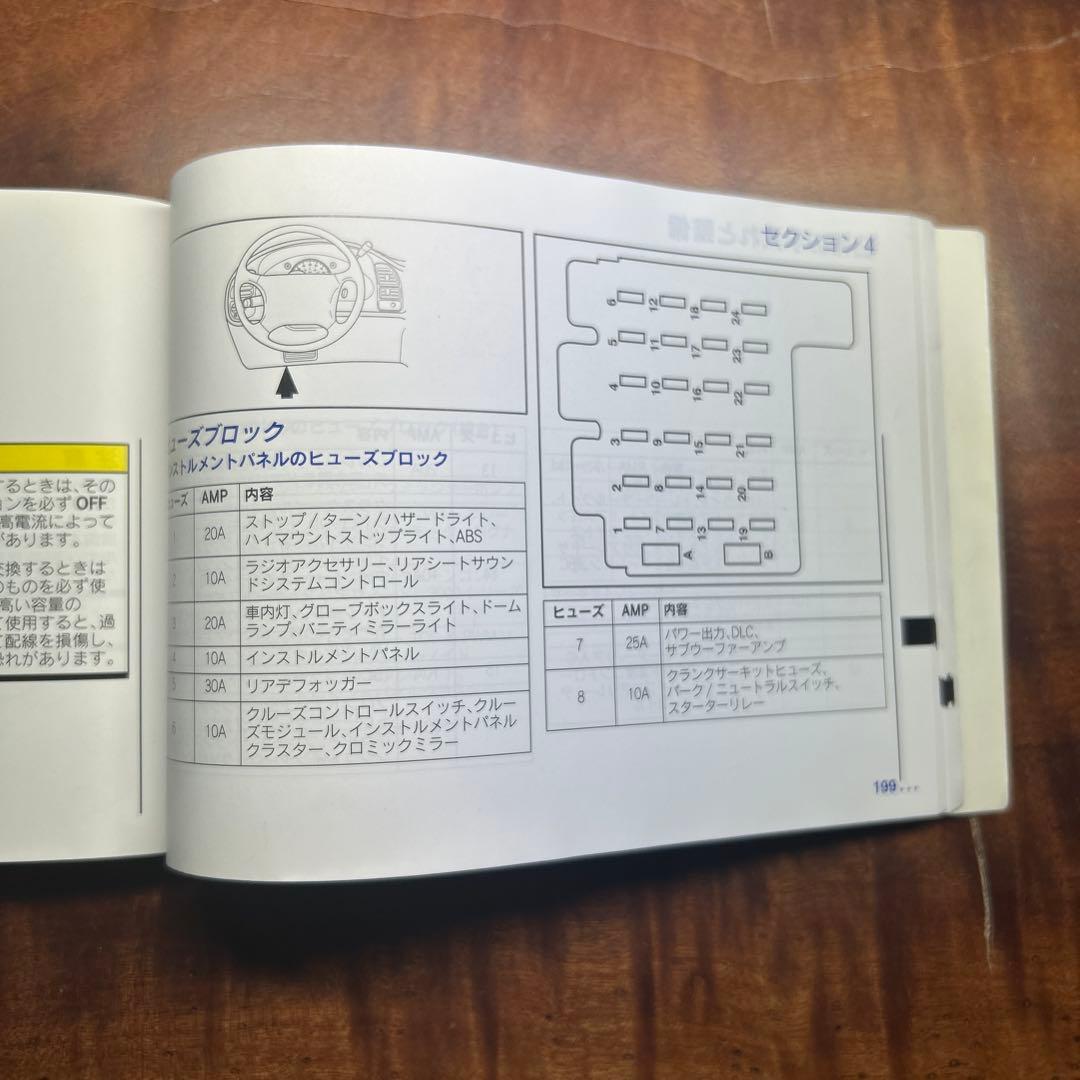 するときは、その
ョンを必ず OFF
高電流によって
があります。
交換するときは
のものを必ず使
高い容量の
て使用すると、過
て配線を損傷し、
恐れがあります。
セクション 4
ューズブロック
ンストルメントパネルのヒューズブロック
ューズ AMP 内容
1 20A ストップ / ターン / ハザードライト、
ハイマウントストップライト、ABS
2 10A ラジオアクセサリー、リアシートサウン
ドシステムコントロール
3 20A 車内灯、グローブボックスライト、ドーム
ランプ、バニティミラーライト
4 10A インストルメントパネル
5 30A リアデフォッガー
6 10A クルーズコントロールスイッチ、クルー
ズモジュール、インストルメントパネル
クラスター、クロミックミラー
6 12 18 24
5 11 17 23
4 10 16 22
3 9 15 21
2 8 14 20
1 7 13 19
A B
ヒューズ AMP 内容
7 25A パワー出力、DLC、
サブウーファーアンプ
8 10A クランクサーキットヒューズ、
パーク / ニュートラルスイッチ、
スターターリレー
199